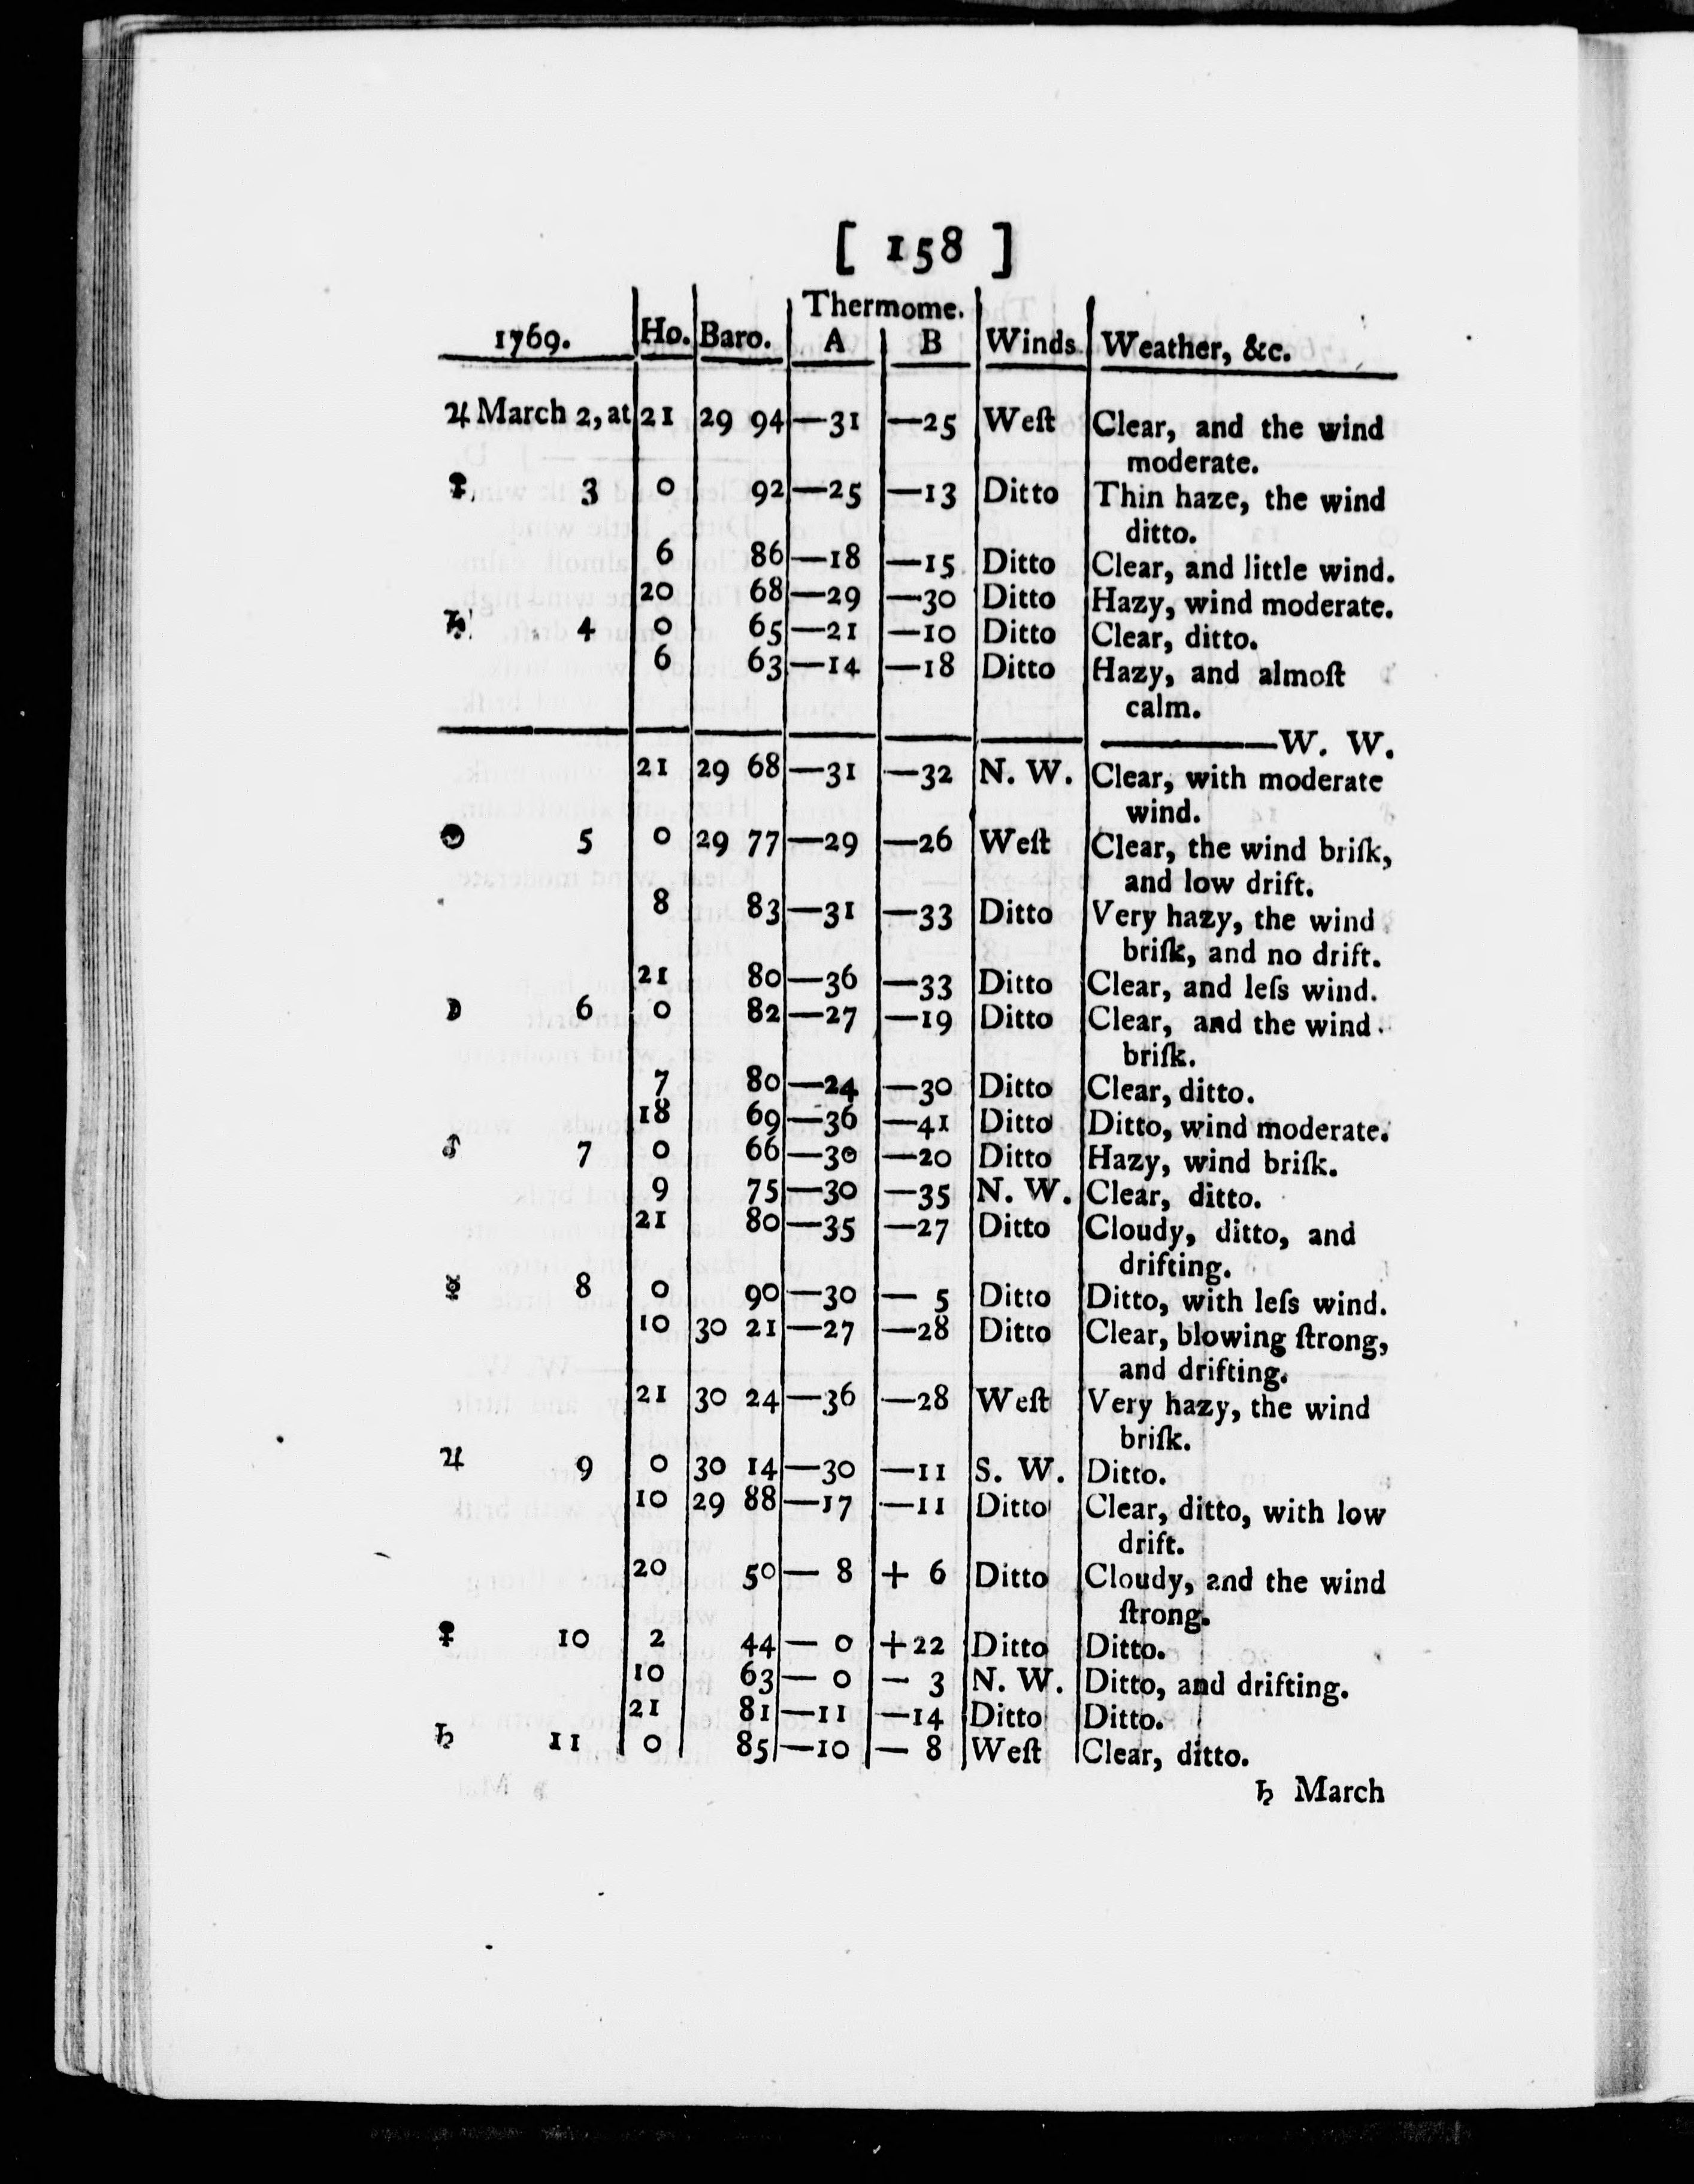 [ 158 ]
Thermome.
1769. Ho. Baro. A B Winds. Weather, &c.
♃ March 2, at 21 29 94 —31 —25 Weſt Clear, and the wind
moderate.
♀ 3 0 92 —25 —13 Ditto Thin haze, the wind
ditto.
6 86 —18 —15 Ditto Clear, and little wind.
20 68 —29 —30 Ditto Hazy, wind moderate.
♄ 4 0 65 —21 —10 Ditto Clear, ditto.
6 63 —14 —18 Ditto Hazy, and almoſt
calm.
W. W.
21 29 68 —31 —32 N. W. Clear, with moderate
wind.
☉ 5 0 29 77 —29 —26 Weſt Clear, the wind briſk,
and low drift.
8 83 —31 —33 Ditto Very hazy, the wind
briſk, and no drift.
21 80 —36 —33 Ditto Clear, and leſs wind.
☽ 6 0 82 —27 —19 Ditto Clear, and the wind
briſk.
7 80 —24 —30 Ditto Clear, ditto.
18 69 —36 —41 Ditto Ditto, wind moderate.
♂ 7 0 66 —30 —20 Ditto Hazy, wind briſk.
9 75 —30 —35 N. W. Clear, ditto.
21 80 —35 —27 Ditto Cloudy, ditto, and
drifting.
☿ 8 0 90 —30 — 5 Ditto Ditto, with leſs wind.
10 30 21 —27 —28 Ditto Clear, blowing ſtrong,
and drifting.
21 30 24 —36 —28 Weſt Very hazy, the wind
briſk.
♃ 9 0 30 14 —30 —11 S. W. Ditto.
10 29 88 —17 —11 Ditto Clear, ditto, with low
drift.
20 50 — 8 + 6 Ditto Cloudy, and the wind
ſtrong.
♀ 10 2 44 — 0 +22 Ditto Ditto.
10 63 — 0 — 3 N. W. Ditto, and drifting.
21 81 —11 —14 Ditto Ditto.
♄ 11 0 85 —10 — 8 Weſt Clear, ditto.
♄ March